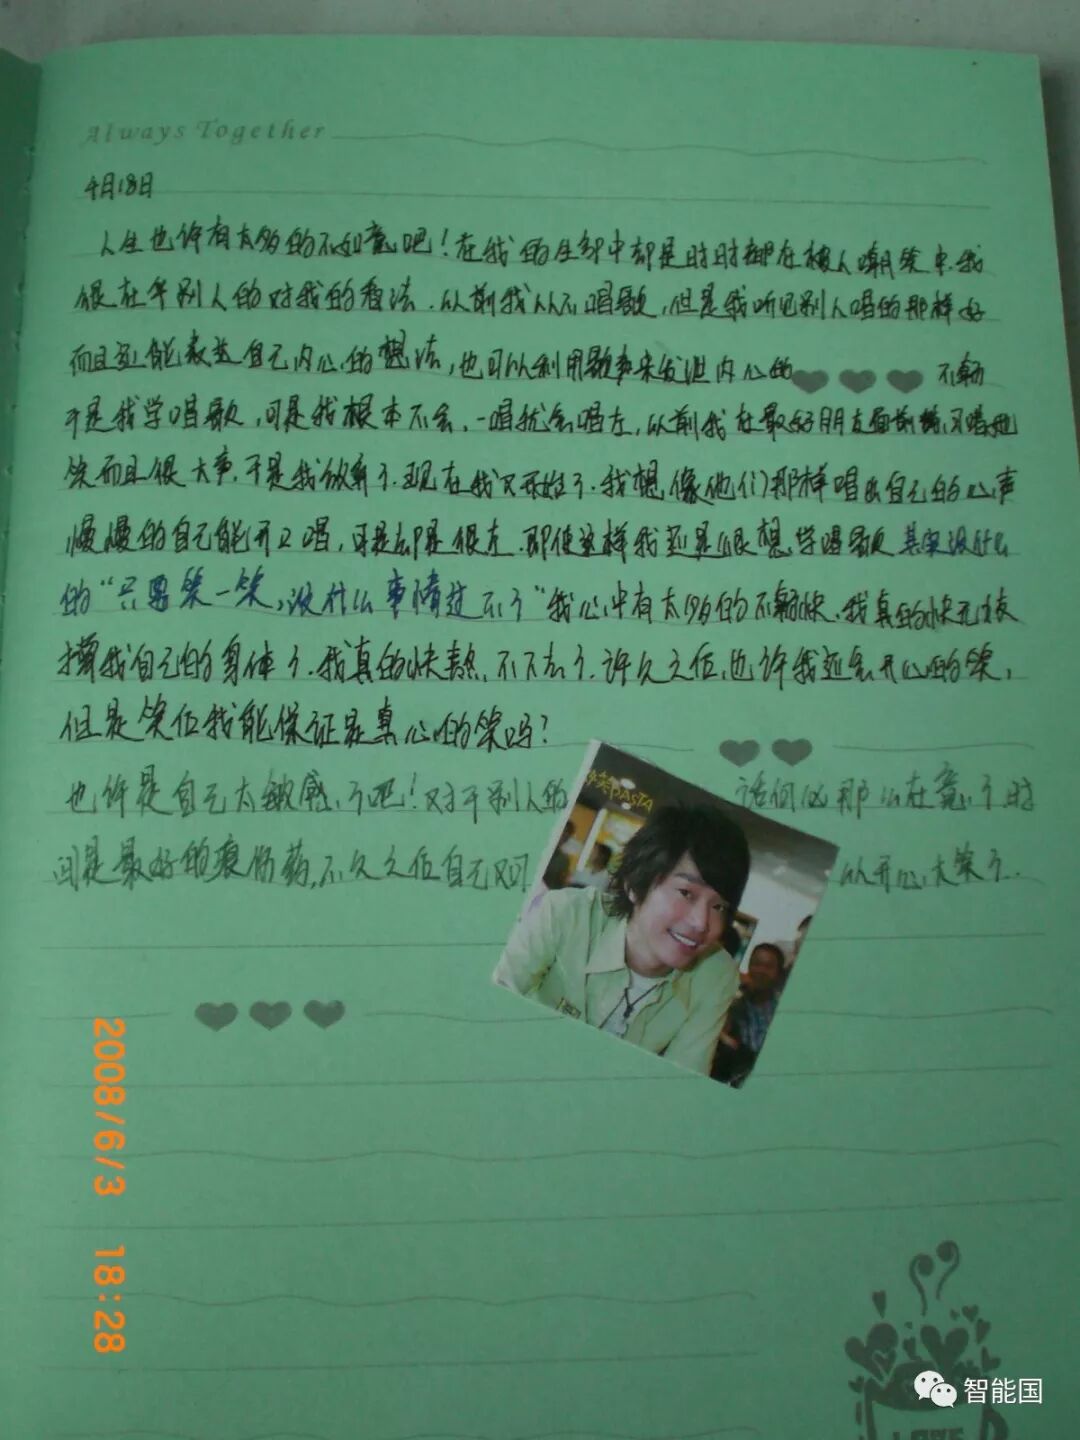 Always Together
4月18日
人生也许有太多的不如意吧！在我的生命中却是时时都在被人嘲笑中.我
很在乎别人的对我的看法.从前我从不唱歌,但是我听见别人唱的那样好
而且还能表达自己内心的想法,也可以利用歌声来发泄内心的 不
于是我学唱歌,可是我根本不会.一唱就会唱左,从前我在最好朋友面前练习唱她
笑而且很大声.于是我放弃了.现在我又开始了.我想像他们那样唱出自己的心声
慢慢的自己能开口唱,可是却是很左.即使这样我还是很想学唱歌其实没什么
的“只要笑一笑,没什么事情过不了“我心中有太多的不愉快.我真的快无
我自己的身体了.我真的快 不下去了.许久之后,也许我还会开心的笑,
但是笑后我能保证是真心的笑吗?
也许是自己太敏感了吧！对于别人的 话何必那么在意了时
间是最好的 伤药.不久之后自己又可 以开心大笑了.
PASTA
2008/6/3 18:28
智能国
LOVE